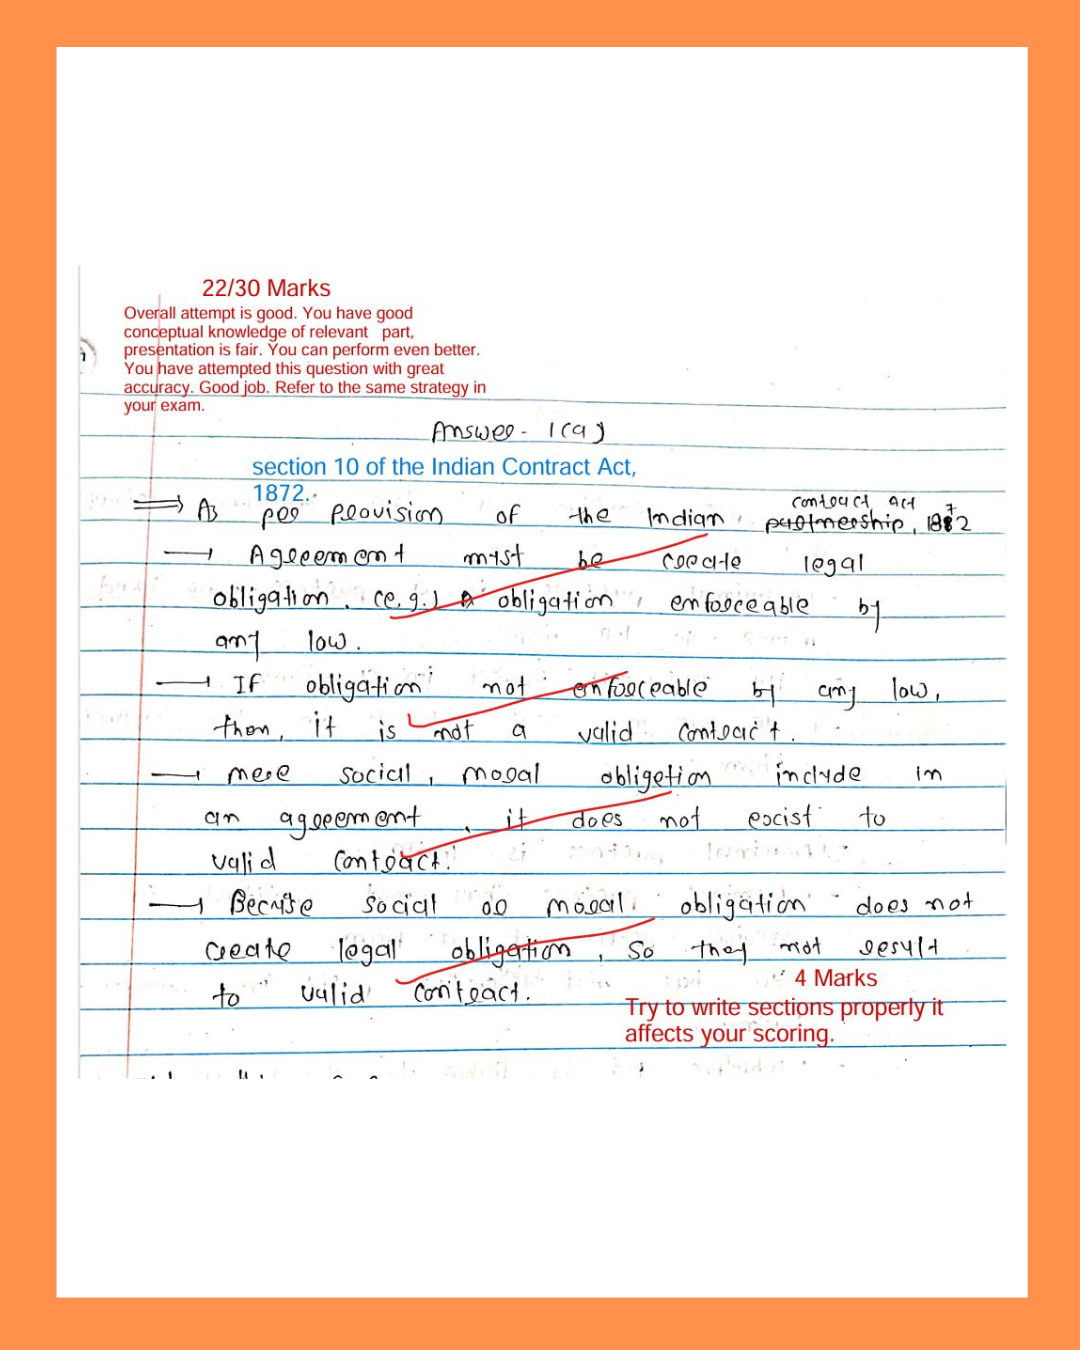 22/30 Marks
Overall attempt is good. You have good
conceptual knowledge of relevant part,
presentation is fair. You can perform even better.
You have attempted this question with great
accuracy. Good job. Refer to the same strategy in
your exam.
Answer - 1(a)
section 10 of the Indian Contract Act,
1872.
contract act
⇒ As per provision of the Indian partnership, 1872
→ Agreement must be create legal
obligation. (e.g.) obligation enforceable by
any low.
→ If obligation not enforceable by any low,
then, it is not a valid contract.
→ mere social, moral obligetion include in
an agreement, it does not excist to
valid contract.
→ Becuse social or moral obligation does not
create legal obligation, so they not result
to valid contract.
4 Marks
Try to write sections properly it
affects your scoring.